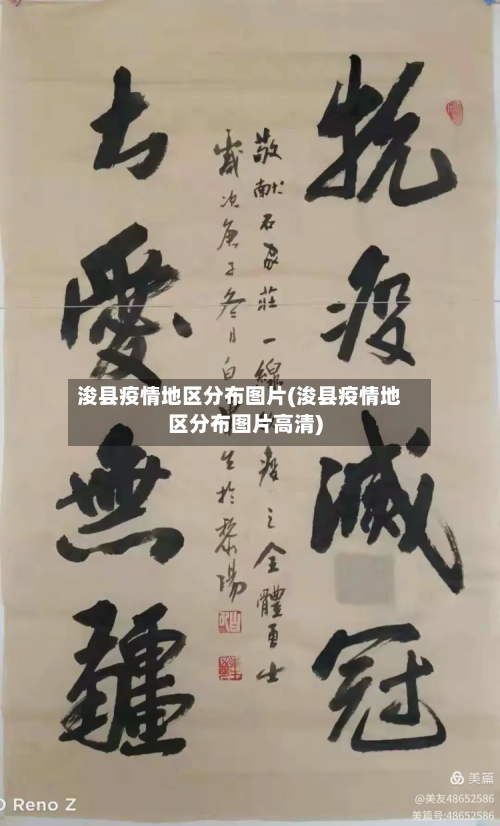 抗疫滅冠
大愛無疆
敬献石家莊一線
疫之全體勇士
歲次庚子冬月白
生於黎陽
浚县疫情地区分布图片(浚县疫情地
区分布图片高清)
美篇
@美友48652586
美篇号:48652586
Reno Z